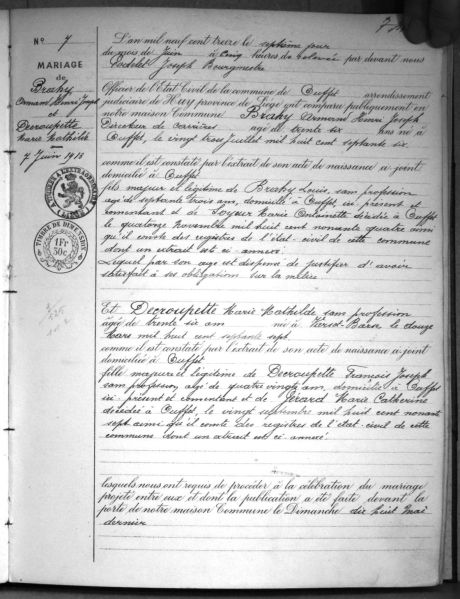 N° 7
MARIAGE
de
Brahy
Armand Henri Joseph
et
Decroupette
Marie Mathilde
7 Juin 1913
TIMBRE DE DIMENSION
1Fr
50c
L'an mil neuf cent treize le septième jour
du mois de Juin à cinq heures de relevée par devant nous
Joseph Bourgmestre
Officier de l'Etat Civil de la commune de Ouffet arrondissement
judiciaire de Huy province de Liège ont comparu publiquement en
notre maison Commune Brahy Armand Henri Joseph
Directeur de carrières âgé de trente six ans né à
Ouffet, le vingt trois Juillet mil huit cent septante six
comme il est constaté par l'extrait de son acte de naissance ci joint
domicilié à Ouffet
fils majeur et légitime de Brahy Louis, sans profession
âgé de septante trois ans, domicilié à Ouffet ici présent et
consentant et de Foyeur Marie Antoinette décédée à Ouffet
le quatorze Novembre mil huit cent nonante quatre ainsi
qu'il conste des registres de l'état-civil de cette commune
dont un extrait est ci annexé.
Lequel par son âge est dispensé de justifier d'avoir
satisfait à ses obligations sur la milice
Et Decroupette Marie Mathilde, sans profession
âgée de trente six ans née à Xhos-Barse le douze
Mars mil huit cent septante sept
comme il est constaté par l'extrait de son acte de naissance ci joint
domiciliée à Ouffet
fille majeure et légitime de Decroupette François Joseph
sans profession, âgé de quatre vingts ans, domicilié à Ouffet
ici présent et consentant et de Gérard Marie Catherine
décédée à Ouffet, le vingt septembre mil huit cent nonante
sept ainsi qu'il conste des registres de l'état-civil de cette
commune dont un extrait est ci annexé.
lesquels nous ont requis de procéder à la célébration du mariage
projeté entre eux et dont la publication a été faite devant la
porte de notre maison Commune le Dimanche dix huit Mai
dernier